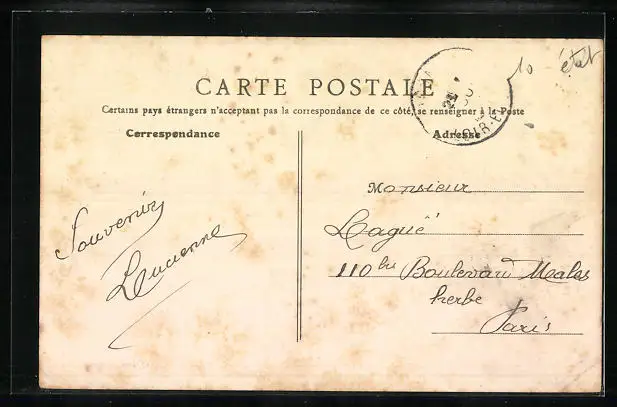 10 état
CARTE POSTALE
Certains pays étrangers n'acceptant pas la correspondance de ce côté, se renseigner à la Poste
Correspondance
Adresse
Souvenir
Lucienne
Monsieur
Lagué
110 bis Boulevard Males
herbe
Paris